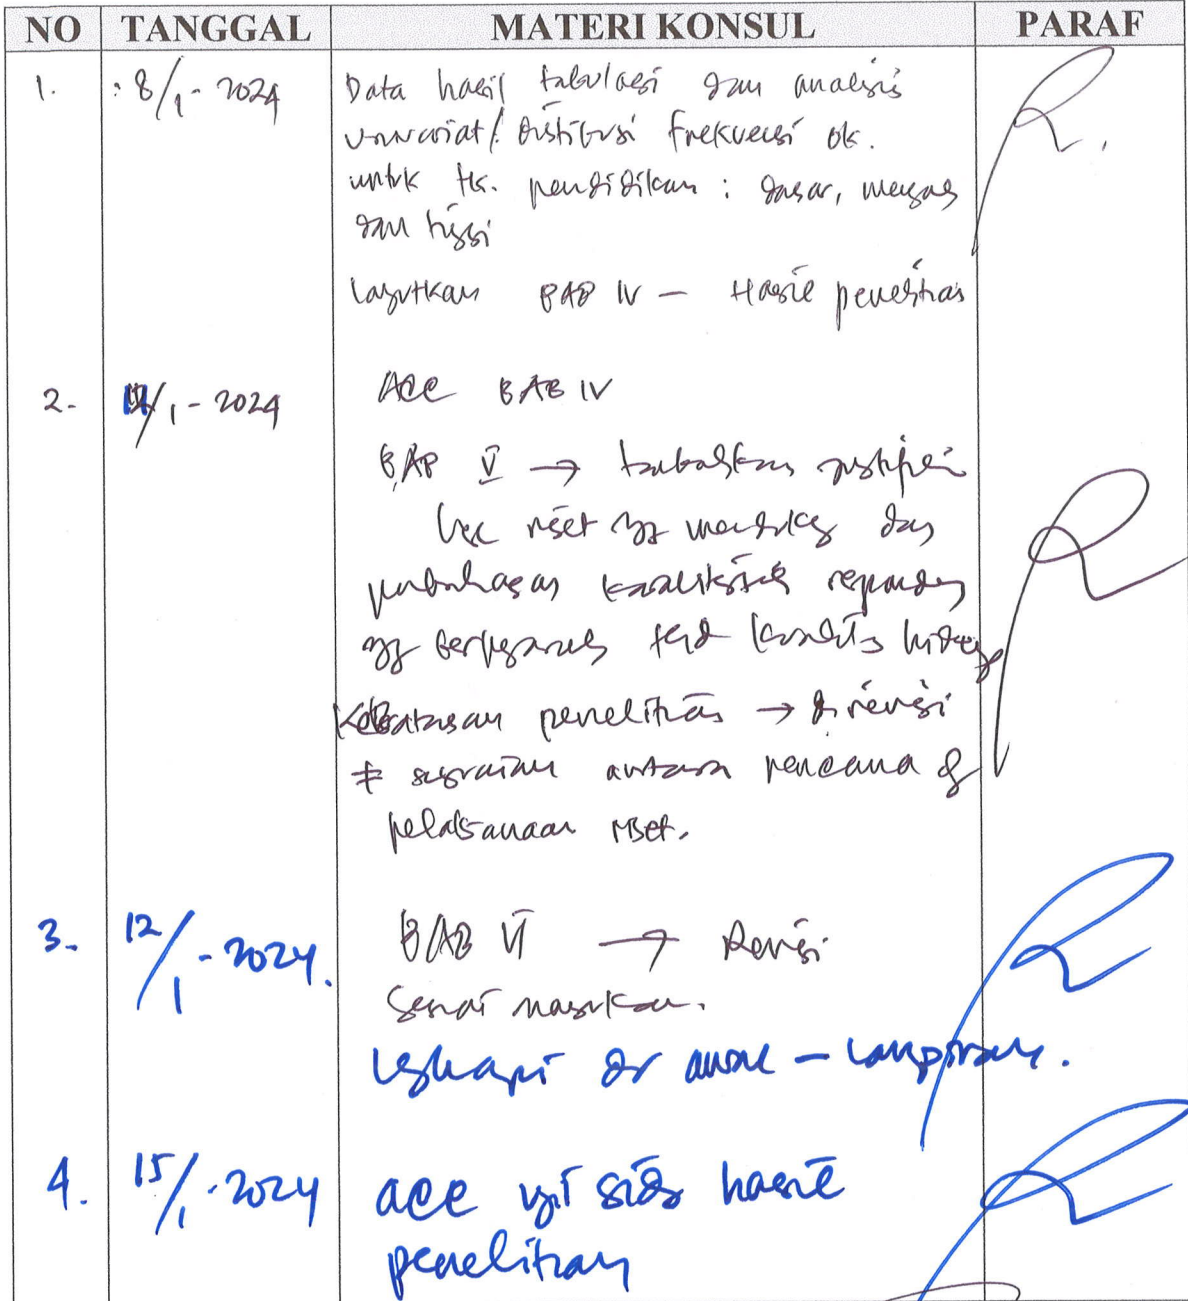 NO TANGGAL MATERI KONSUL PARAF
1. 8/1-2024 Data hasil tabulasi dan analisis
univariat/distribusi frekuensi ok.
untuk tk. pendidikan : dasar, menengah
dan tinggi
Lanjutkan BAB IV — Hasil penelitian
2. /1-2024 ACC BAB IV
BAB V → tambahkan justifikasi
riset yg mendukung dan
pembahasan karakteristik responden
yg berpengaruh terhd kualitas hidup
Keterbatasan penelitian → direvisi
≠ sesuaian antara rencana &
pelaksanaan riset.
3. 12/1-2024. BAB VI → Revisi
Sesuai masukan.
Lengkapi dr awal – lampiran.
4. 15/1-2024 acc uji sidang hasil
penelitian